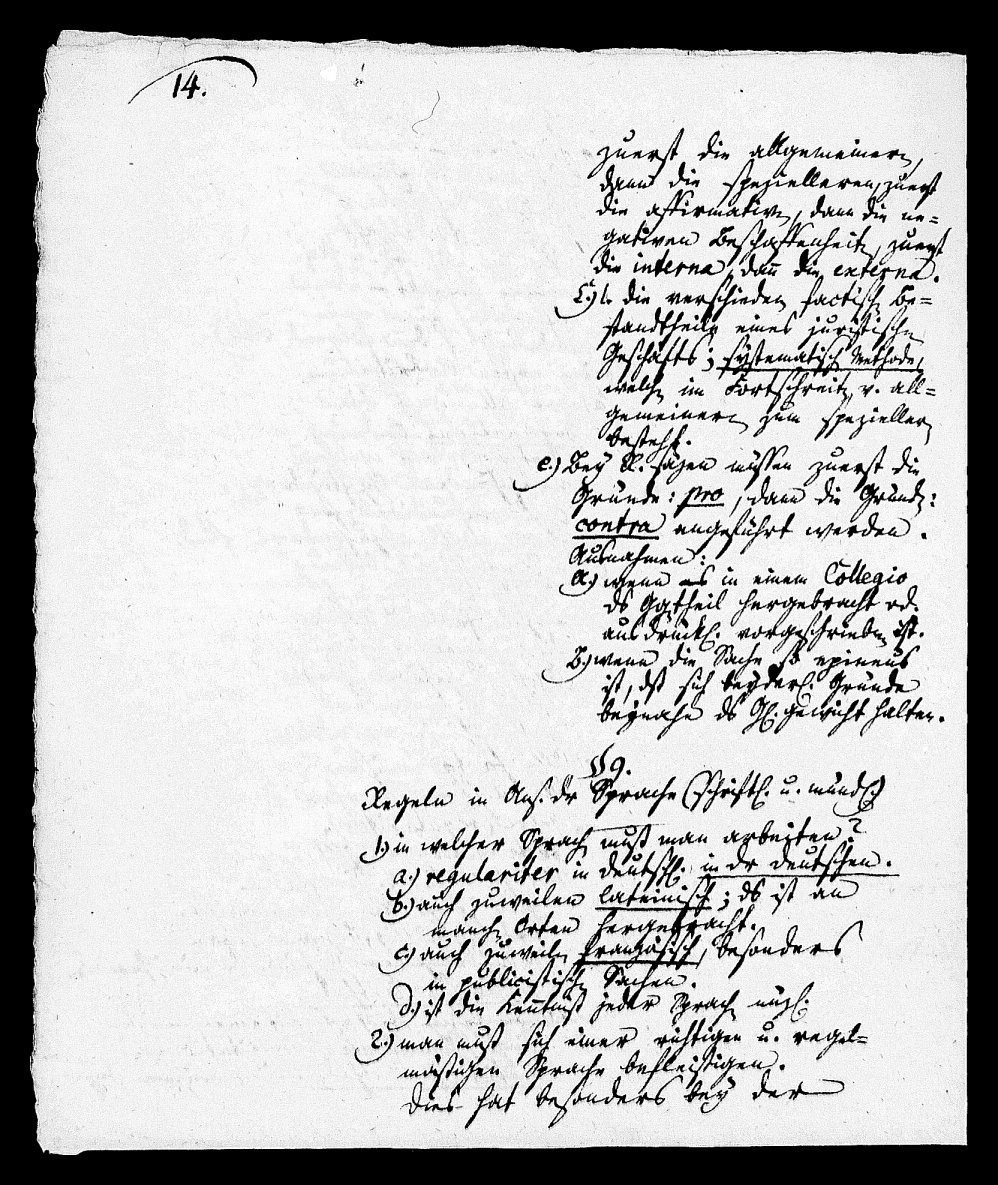 14.
zuerst die allgemeinern,
dann die spezielleren, zuerst
die affirmativen, dann die ne=
gativen Beschaffenheiten, zuerst
die interna, dañ die externa.
C.) die verschiedenen factischen Be=
standtheile eines juristischen
Geschäfts; systematische Methode,
welche im Fortschreiten v. all=
gemeinern zum speziellern
besteht.
e.) Bey säzen müssen zuerst die
Gründe: pro, dann die Gründe:
contra angeführt werden.
Ausnahmen:
a.) wenn es in einem Collegio
ds Ggtheil hergebracht od.
ausdrückl. vorgeschrieben ist.
b.) wenn die Sache so epineus
ist, dß sich beyderl. Gründe
beynahe ds Gl. gewicht halten.
§ 9.
Regeln in Ans. dr Sprache (schriftl. u. mündl.)
1.) in welcher Sprache muß man arbeiten?
a.) regulariter in deutschl. in dr deutschen.
b.) auch zuweilen lateinisch; ds ist an
manchen Orten hergebracht.
c.) auch zuweilen französisch, besonders
in publicistischen Sachen.
d.) ist die Kenntniß jeder Sprache nüzl.
2.) man muß sich einer richtigen u. regel=
mäsigen Sprache befleisigen.
Dies hat besonders bey der